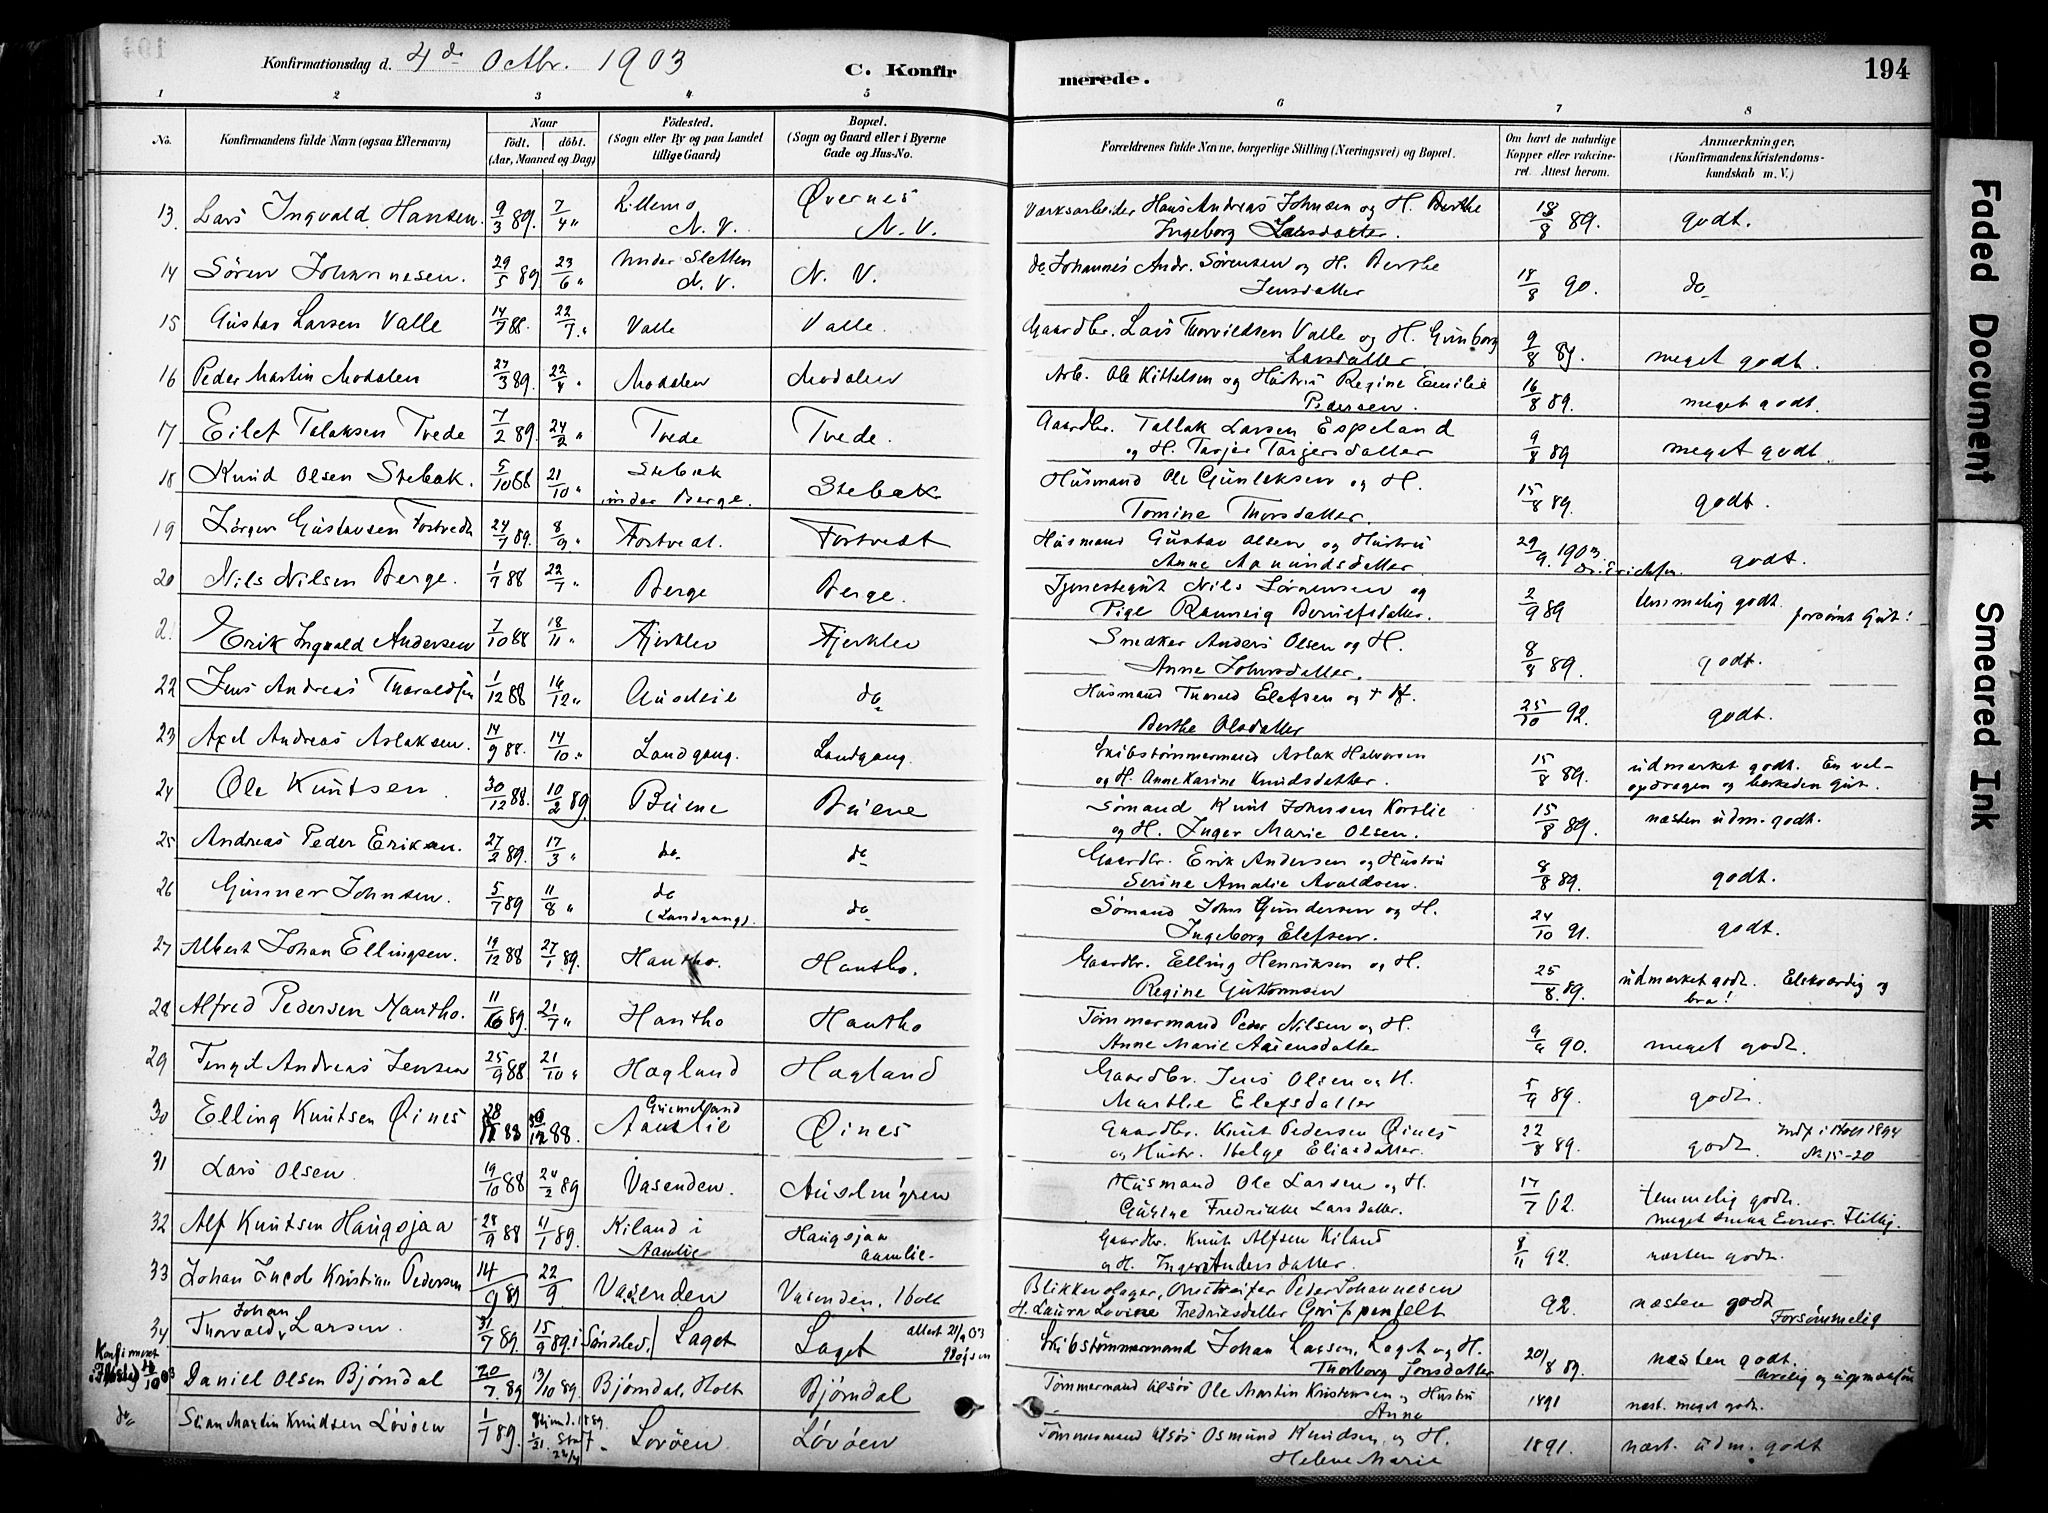 Konfirmationsdag d. 4de Octbr. 1903
C. Konfir merede. 194
1 2 3 4 5 6 7 8
No. Konfirmandens fulde Navn (ogsaa Efternavn) Naar födt. döbt. (Aar, Maaned og Dag) Födested. (Sogn eller By og paa Landet tillige Gaard) Bopæl. (Sogn og Gaard eller i Byerne Gade og Hus-No. Forældrenes fulde Navne, borgerlige Stilling (Næringsvei) og Bopæl. Om havt de naturlige Kopper eller vakcineret. Attest herom. Anmærkninger. (Konfirmandens Kristendomskundskab m. V.)
13. Lars Ingvald Hansen. 9/3 89. 7/4 " N. V. Øvernes N. V. Værksarbeider Hans Andreas Johnsen og H. Berthe Ingeborg Larsdatter. 18/8 89. godt.
14 Søren Johannesen. 29/5 89 23/6 " under Sletten N. V. N. V. do Johannes Andr. Sørensen og H. Berthe Jensdatter 18/8 90. do
15 Gustav Larsen Valle 14/7 88. 22/7 " Valle Valle. Gaardbr. Lars Thorvildsen Valle og H. Gunborg Larsdatter 9/8 89. meget godt.
16 Peder Martin Modalen 27/3 89. 22/4 " Modalen Modalen Arb. Ole Kittelsen og Hustru Regine Emilie Pedersen. 16/8 89. meget godt.
17 Eilef Talaksen Tvede 7/2 89. 24/2 " Tvede Tvede. Gaardbr. Tallak Larsen Espeland og H. Tarjer Targersdatter 9/8 89 meget godt.
18 Knud Olsen Stebæk. 5/10 88 21/10 " Stebæk under Berge. Stebæk Husmand Ole Gunleksen og H. Tomine Thorsdatter. 15/8 89. godt.
19 Jørgen Gustavsen Fostvedt 24/7 89. 8/9 " Fostvedt. Fostvedt Husmand Gustav Olsen og Hustru Anne Aanundsdatter. 29/9. 1903 Dr. Erichsen. godt.
20 Nils Nilsen Berge. 1/7 88 22/7 " Berge Berge. Tjenestegut Nils Jørgensen og Pige Ranneig 2/9 89 temmelig godt. forsømt Gut!
21 Erik Ingvald Andersen 7/10 88 18/11 " Fjerklev Fjerklev Snedker Anders Olsen og H. Anne Johnsdatter. 8/8 89. godt.
22 Jens Andreas Thoraldsen 1/12 88 16/12 " do Husmand Thorald Elefsen og + H. Berthe Olsdatter 25/10 92. godt.
23 Axel Andreas Aslaksen. 14/9 88. 14/10 " Landgang. Landgang. Skibstømmermand Aslak Halvorsen og H. Anne Karine Knudsdatter. 15/8 89. udmærket godt. En velopdragen og beskeden Gut.
24 Ole Knutsen. 30/12 88. 10/2 89. Buene Buene Sømand Knut Johnsen Korslie og H. Inger Marie Olsen. 15/8 89. næsten udm. godt.
25 Andreas Peder Eriksen. 27/2 89. 17/3 " do. do Gaardbr. Erik Andersen og Hustru Serine Amalie Avaldsen. 8/8 89. godt.
26 Gunner Johnsen. 5/7 89 11/8 " do (Landgang). do Sømand John Gundersen og H. Ingeborg Elefsen. 24/10 91. godt.
27 Albert Johan Ellingsen. 19/12 88 27/1 89. Hantho. Hantho. Gaardbr. Elling Henriksen og H. Regine Guttormsen 25/8. 89. udmærket godt. Elskværdig og bra!
28 Alfred Pedersen Hantho. 11/6 89. 21/7 " Hantho Hantho Tømmermand Peder Nilsen og H. Anne Marie Aasensdatter 9/9 90. meget godt.
29 Tengel Andreas Jensen 25/9 88 21/10 " Hagland Hagland Gaardbr. Jens Olsen og H. Marthe Elefsdatter 5/9 89. godt.
30 Elling Knutsen Øines 88 88. Aamlie Øines Gaardbr. Knut Pedersen Øines og Hustr. Helge Eliasdatter. 22/8 89. godt. Indf i Holt 1894 No 15-20
31 Lars Olsen. 19/10 88 24/2 89 Vasenden. Husmand Ole Larsen og H. Gurine Fredrikke Larsdatter. 17/7 02. temmelig godt. meget smaa Evner. Flittig.
32 Alf Knutsen Haugsjaa 28/9 88 11/1 89. Kiland i Aamlie Haugsjaa Aamlie. Gaardbr. Knut Alfsen Kiland og H. Inger Andersdatter. 8/11 92. næsten godt.
33 Johan Jacob Kristian Pedersen 14/9 89 22/9 Vasenden Vasenden. Holt Blikkenslager, Peder Johannesen H. Laura Lovine Fredriksdatter Griffenfelt 92. næsten godt Forsømmelig
34 Thorvald Johan Larsen. 31/7 89. 15/9 89. i Søndeled. Laget Laget attest 21/9 03 Skibstømmermand Johan Larsen, Laget og H. Thorborg Jonsdatter 20/8 89. næsten godt.
Konfirmeret 03 Daniel Olsen Bjørndal 20/7. 89 13/10 89. Bjørndal. Holt Bjørndal Tømmermand Ole Martin Kristensen og Hustru Anne 1891 næst. meget godt.
do Stian Martin Knudsen Lövöen 1/7 89. Lovöen Lövöen Tømmermand Osmund Knudsen og H. Helene Marie 1891. næst. udm. godt
Faded Document
Smeared Ink